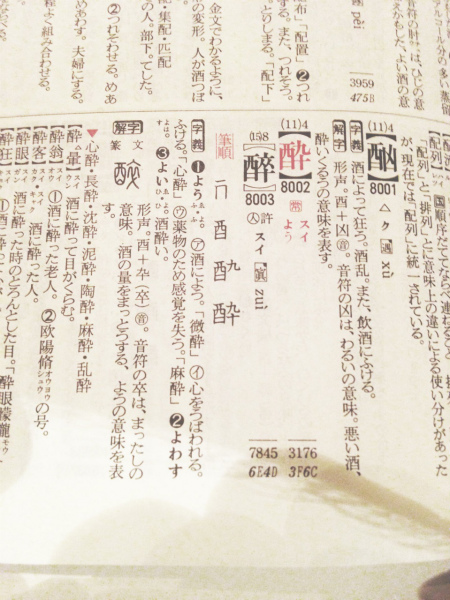 アルコール分の多い
[酉]の肘は、ひじの意
えかもした、よい酒の意
3959
475B
布」「配置」❷つれ
る。また、つれそう。
と。とりしまる。「配下」
金文でわかるように、
の変形。人が酒つぼ
配・集配・匹配
の人。部下。てした。
❷つれそわせる。めあ
めあわす。夫婦にする。
程よく組み合わせる。
【配列】
国順序だててならべ連ねる
「配列」と「排列」とに意味上の違いによる使い分けがあった
が、現在では、「配列」に統一されている。
(11)4
【酗】
8001
△ク 遇 xù
字義 酒によって狂う。酒乱。また、飲酒にふける。
解字 形声。酉+凶音。音符の凶は、わるいの意味。悪い酒、
酔いくるうの意味を表す。
(11)4
【酔】
8002
常 スイ
よう
3176
3F6C
(15)8
【醉】
8003
人 許 スイ 寘 zuì
7845
6E4D
筆順 酉 酔 酔
字義 ❶よう。㋐酒によう。「微酔」㋑心をうばわれる。
ふける。「心酔」㋒薬物のため感覚を失う。「麻酔」❷よわす
❸よい。酒酔い。
解字 篆文
形声。酉+卒(卒)音。音符の卒は、まったしの
意味。酒の量をまっとうする、ようの意味を表
▼心酔・長酔・沈酔・泥酔・陶酔・麻酔・乱酔
【酔暈】スイウン 酒に酔って目がくらむ。
【酔翁】スイオウ ①酒に酔った老人。②欧陽脩オウヨウシュウの号。
【酔客】スイカク・スイキャク 酒に酔った人。
【酔眼】スイガン 酒に酔った時のとろんとした目。「酔眼朦朧モウ
【酔狂】スイキョウ ①酒に酔って